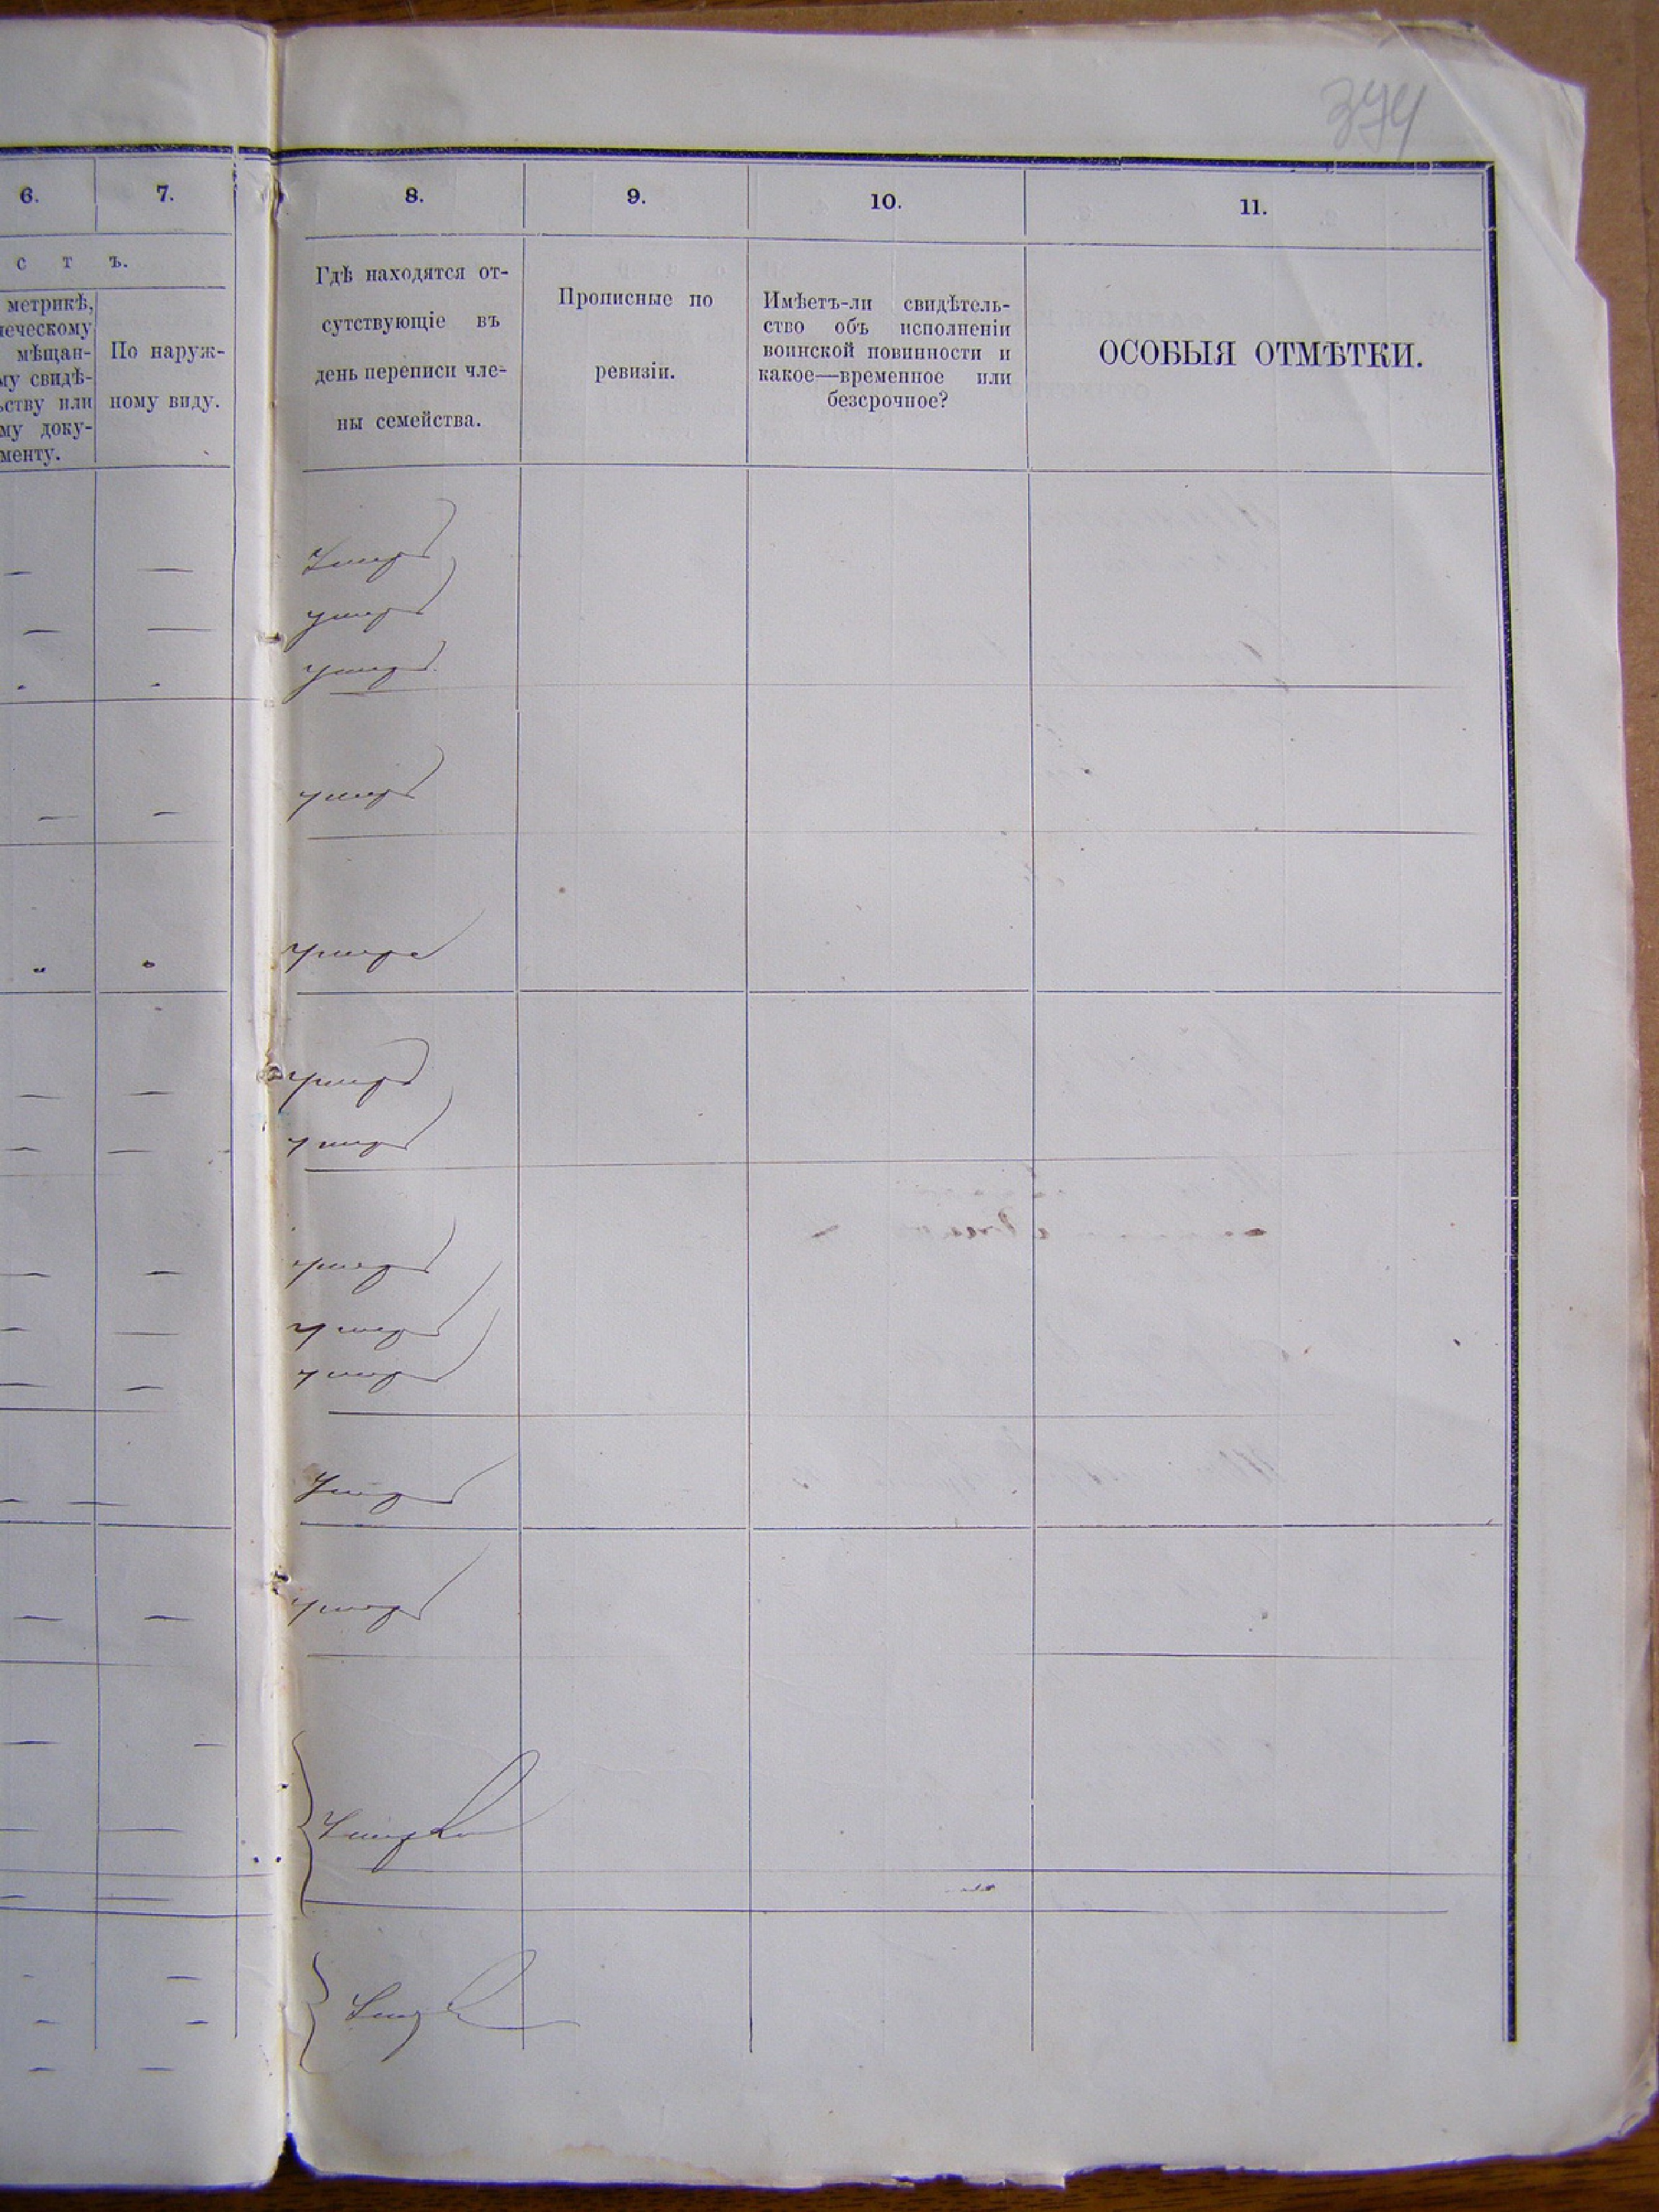 394
6.
7.
8.
9.
10.
11.
с т ъ.
метрикѣ,
ческому
мѣщан-
му свидѣ-
ству или
му доку-
менту.
По наруж-
ному виду.
Гдѣ находятся от-
сутствующіе въ
день переписи чле-
ны семейства.
Прописные по
ревизіи.
Имѣетъ-ли свидѣтель-
ство объ исполненіи
воинской повинности и
какое—временное или
безсрочное?
ОСОБЫЯ ОТМѢТКИ.
Умеръ
умеръ
умеръ
умеръ
умерла
умеръ
умеръ
умеръ
умеръ
умеръ
Умеръ
умеръ
Умерли
Умерли